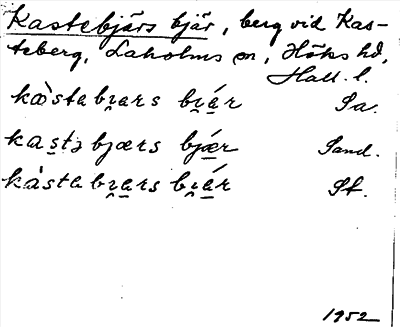 Kastebjärs bjär, berg vid Kas-
teberg, Laholms sn, Höks hd,
Hall. l.
kàstabɪ̯ars bɪ̯ár Sa.
kastə bjærs bjǽr Sand.
kàstabɪ̯ars bɪ̯ár St.
1952